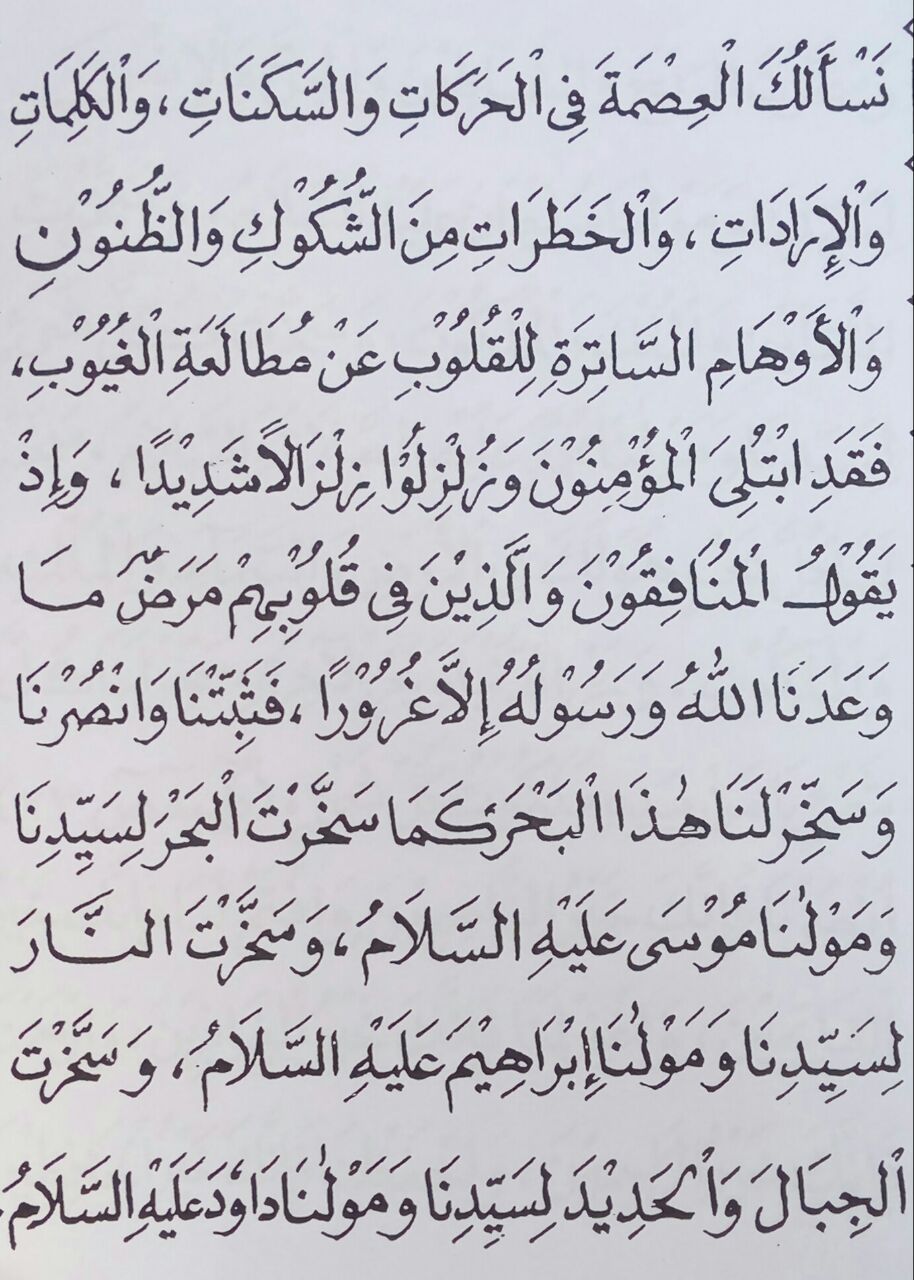 نَسْأَلُكَ الْعِصْمَةَ فِى الْحَرَكَاتِ وَالسَّكَنَاتِ ، وَالْكَلِمَاتِ
وَالْإِرَادَاتِ ، وَالْخَطَرَاتِ مِنَ الشُّكُوْكِ وَالظُّنُوْنِ
وَالْأَوْهَامِ السَّاتِرَةِ لِلْقُلُوْبِ عَنْ مُطَالَعَةِ الْغُيُوْبِ ،
فَقَدِ ابْتُلِىَ الْمُؤْمِنُوْنَ وَزُلْزِلُوْا زِلْزَالًا شَدِيْدًا ، وَإِذْ
يَقُوْلُ الْمُنَافِقُوْنَ وَالَّذِيْنَ فِى قُلُوْبِهِمْ مَرَضٌ مَا
وَعَدَنَا اللّٰهُ وَرَسُوْلُهُ إِلَّا غُرُوْرًا ، فَثَبِّتْنَا وَانْصُرْنَا
وَسَخِّرْ لَنَا هٰذَا الْبَحْرَ كَمَا سَخَّرْتَ الْبَحْرَ لِسَيِّدِنَا
وَمَوْلٰنَا مُوْسَى عَلَيْهِ السَّلَامُ ، وَسَخَّرْتَ النَّارَ
لِسَيِّدِنَا وَمَوْلٰنَا إِبْرَاهِيْمَ عَلَيْهِ السَّلَامُ ، وَسَخَّرْتَ
الْجِبَالَ وَالْحَدِيْدَ لِسَيِّدِنَا وَمَوْلٰنَا دَاوٗدَ عَلَيْهِ السَّلَامُ ،